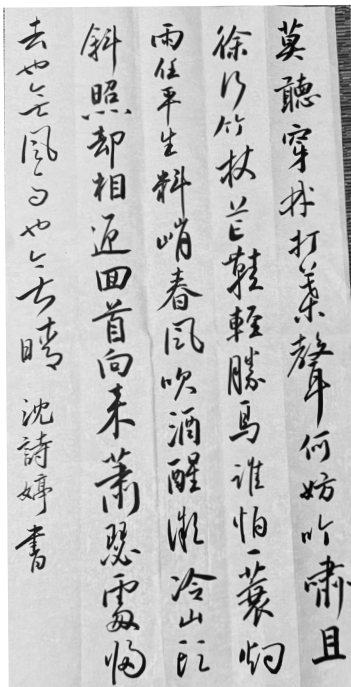 莫聽穿林打葉聲何妨吟嘯且
徐行竹杖芒鞋輕勝馬誰怕一蓑烟
雨任平生料峭春風吹酒醒微冷山頭
斜照却相迎回首向来蕭瑟處歸
去也無風雨也無晴 沈詩婷書